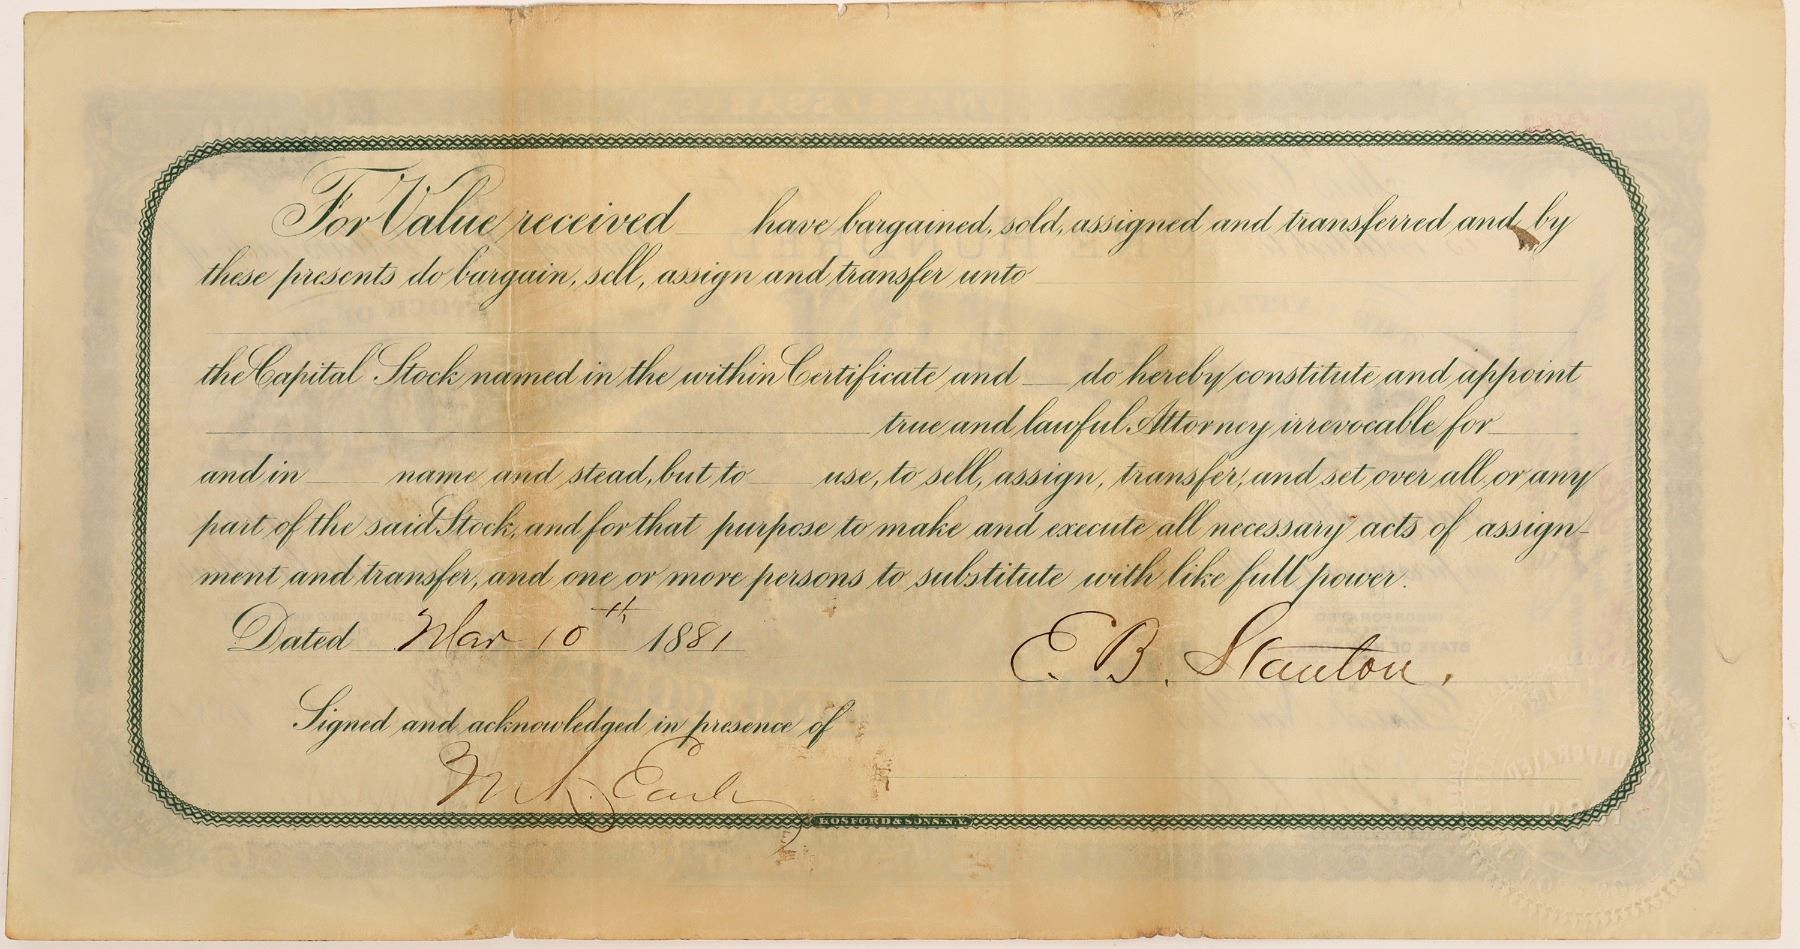 For Value received have bargained, sold, assigned and transferred and by
these presents do bargain, sell, assign and transfer unto
the Capital Stock named in the within Certificate and do hereby constitute and appoint
true and lawful Attorney irrevocable for
and in name and stead, but to use, to sell, assign, transfer, and set over all or any
part of the said Stock, and for that purpose to make and execute all necessary acts of assign-
ment and transfer, and one or more persons to substitute with like full power.
Dated Mar 10th 1881
E. B. Stanton.
Signed and acknowledged in presence of